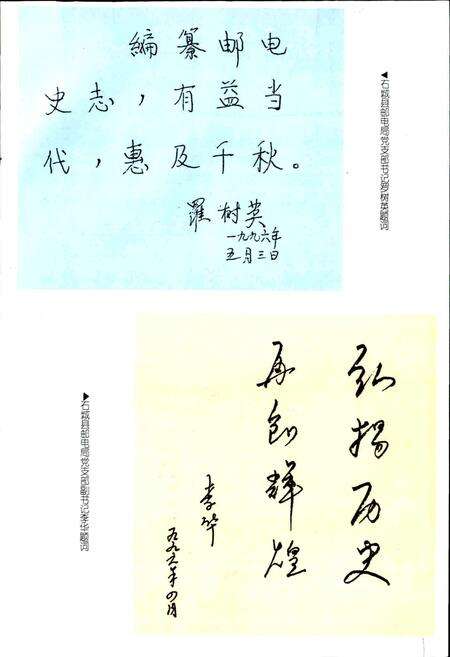 編纂邮电
史志，有益当
代，惠及千秋。
羅树英
一九九六年
五月三日
◀石城县邮电局党支部书记罗树英题词
弘揚历史
再创辉煌
李华
一九九六年四月
▶石城县邮电局党支部副书记李华题词